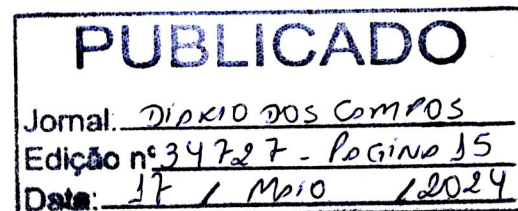 PUBLICADO
Jornal: DIÁRIO DOS CAMPOS
Edição nº 34727 - PÁGINA 15
Data: 17 / MAIO / 2024